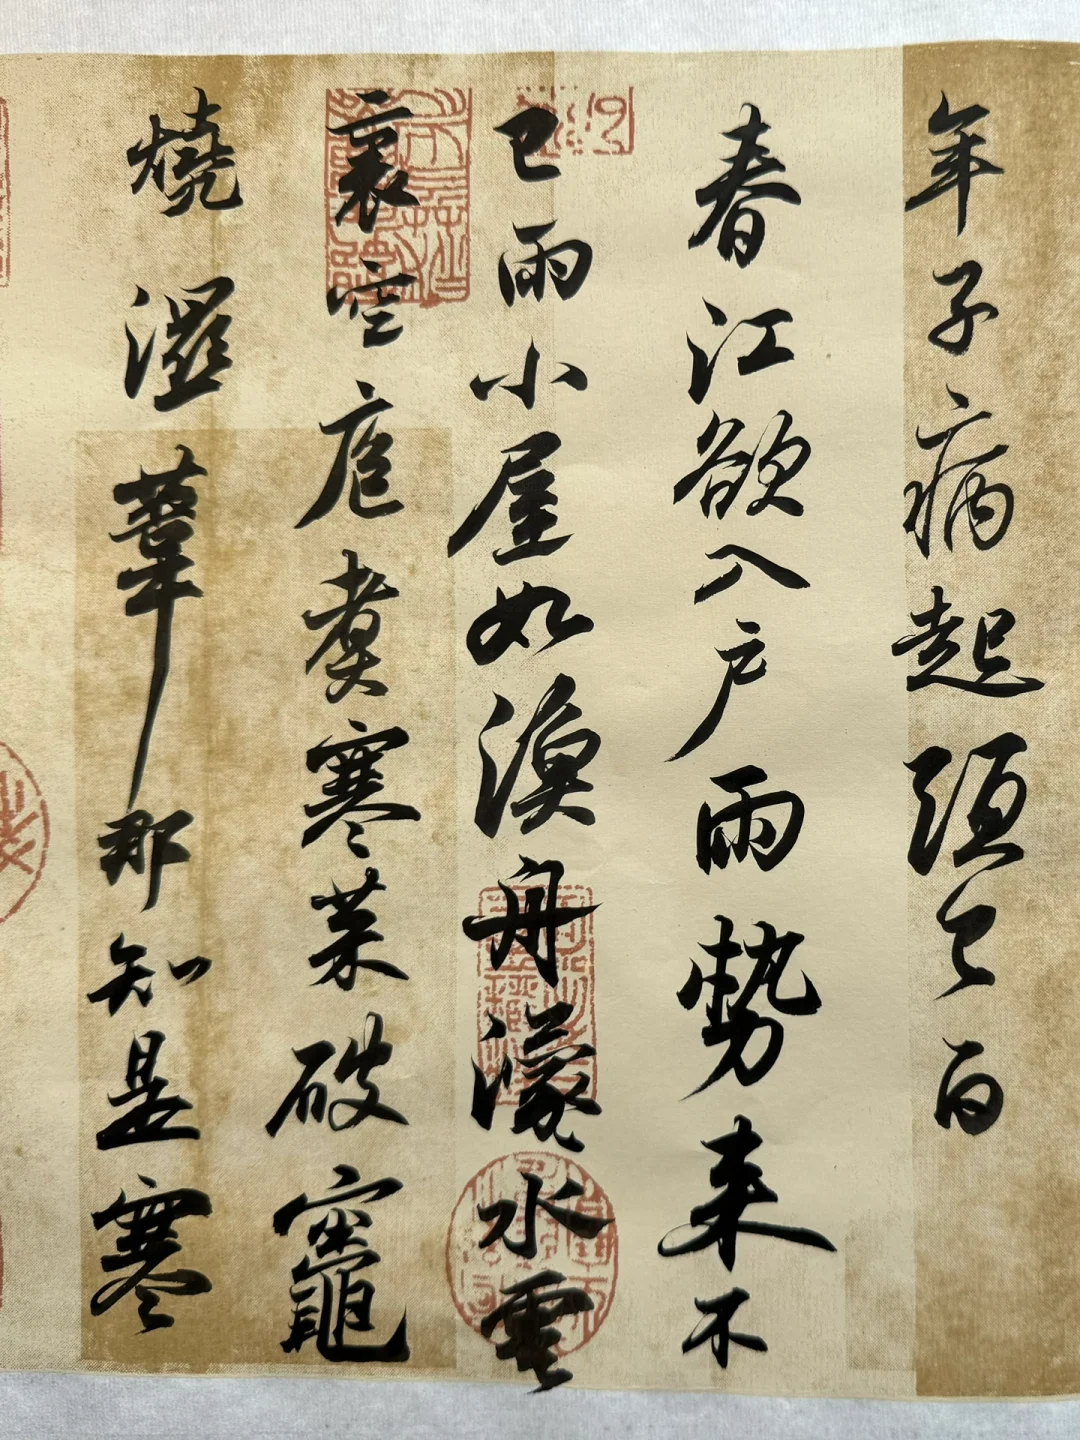 年子病起須已白
春江欲入戶雨勢来不
已雨小屋如漁舟濛水雲
裏空庖煑寒菜破竈
燒濕葦那知是寒